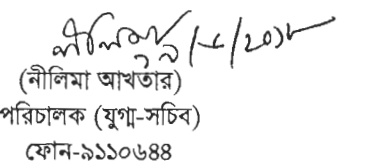 (নীলিমা আখতার)
পরিচালক (যুগ্ম-সচিব)
ফোন-৯১১০৬৪৪